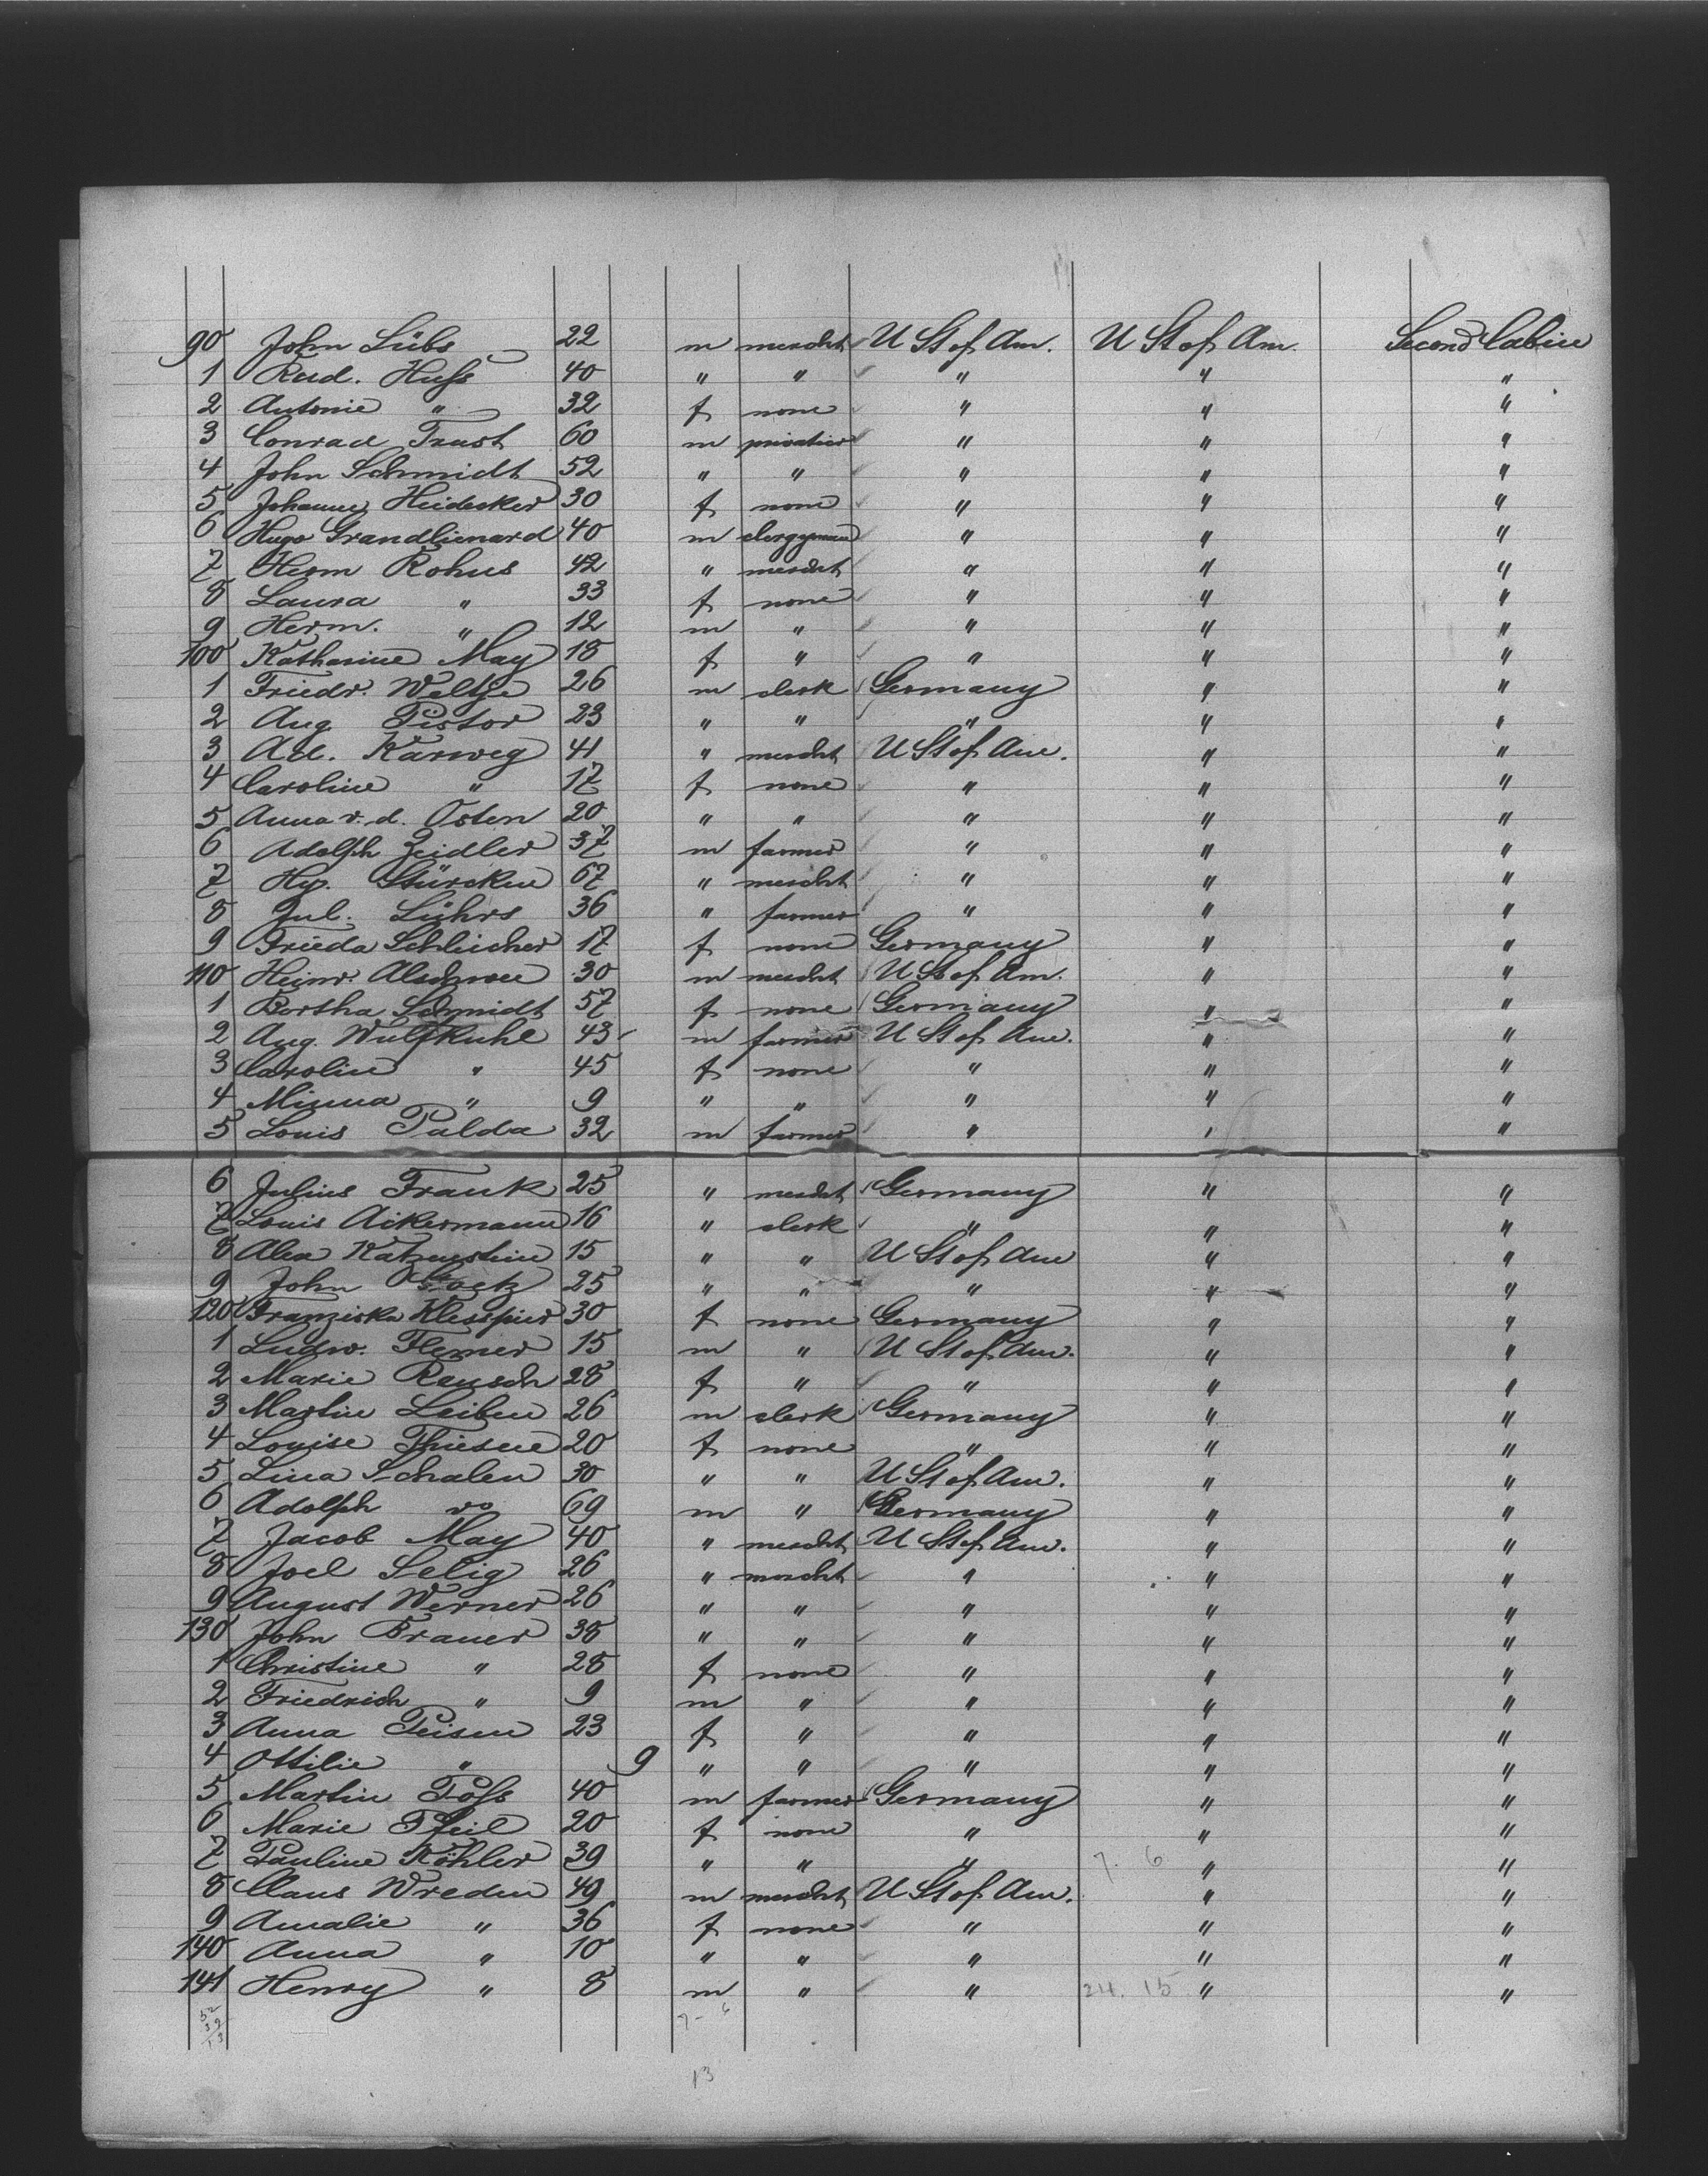 90 John Lübs 22 m mercht U St of Am. U St of Am. Second Cabin
1 Rud. Huſs 40 " " " " "
2 Antonie " 32 f none " " "
3 Conrad Trust 60 m privatier " " "
4 John Schmidt 52 " " " " "
5 Johanne Heidecker 30 f none " " "
6 Hugo Grandlienard 40 m clergyman " " "
7 Herm Rohus 42 " mercht " " "
8 Laura " 33 f none " " "
9 Herm. " 12 m " " " "
100 Katharine May 18 f " " " "
1 Friedr. Weltje 26 m clerk Germany " "
2 Aug Pistor 23 " " " " "
3 Ad. Karweg 41 " mercht U St of Am. " "
4 Caroline " 17 f none " " "
5 Anna v. d. Osten 20 " " " " "
6 Adolph Zeidler 37 m farmer " " "
7 Hy. Stürcken 67 " mercht " " "
8 Jul. Lührs 36 " farmer " " "
9 Frieda Schleicher 17 f none Germany " "
110 Heinr. 30 m mercht U St of Am. " "
1 Bertha Schmidt 57 f none Germany " "
2 Aug. Wulfkuhl 43 m farmer U St of Am. " "
3 Carolin " 45 f none " " "
4 Minna " 9 " " " " "
5 Louis Palda 32 m farmer " " "
6 Julius Frank 25 " mercht Germany " "
7 Louis Ackermann 16 " clerk " " "
8 Alex Katzenstein 15 " " U St of Am " "
9 John 25 " " " " "
120 Franziska 30 f none Germany " "
1 Ludw. Flemer 15 m " U St of Am. " "
2 Marie Rausch 28 f " " " "
3 Martin Leiben 26 m clerk Germany " "
4 Louise Thiesen 20 f none " " "
5 Lina Schalen 30 " " U St of Am. " "
6 Adolph do 69 m " Germany " "
7 Jacob May 40 " mercht U St of Am. " "
8 Joel Selig 26 " mercht " " "
9 August Werner 26 " " " " "
130 John Brauer 38 " " " " "
1 Christine " 28 f none " " "
2 Friedrich " 9 m " " " "
3 Anna Peisen 23 f " " " "
4 Ottilie " 9 " " " " "
5 Martin Poſs 40 m farmer Germany " "
6 Marie Pfeil 20 f none " " "
7 Pauline Köhler 39 " " " 7. 6 " "
8 Claus Wreden 49 m mercht U St of Am. " "
9 Amalie " 36 f none " " "
140 Anna " 10 " " " " "
141 Henry " 8 m " " 24. 15 " "
52
39
13
7 - 6
13